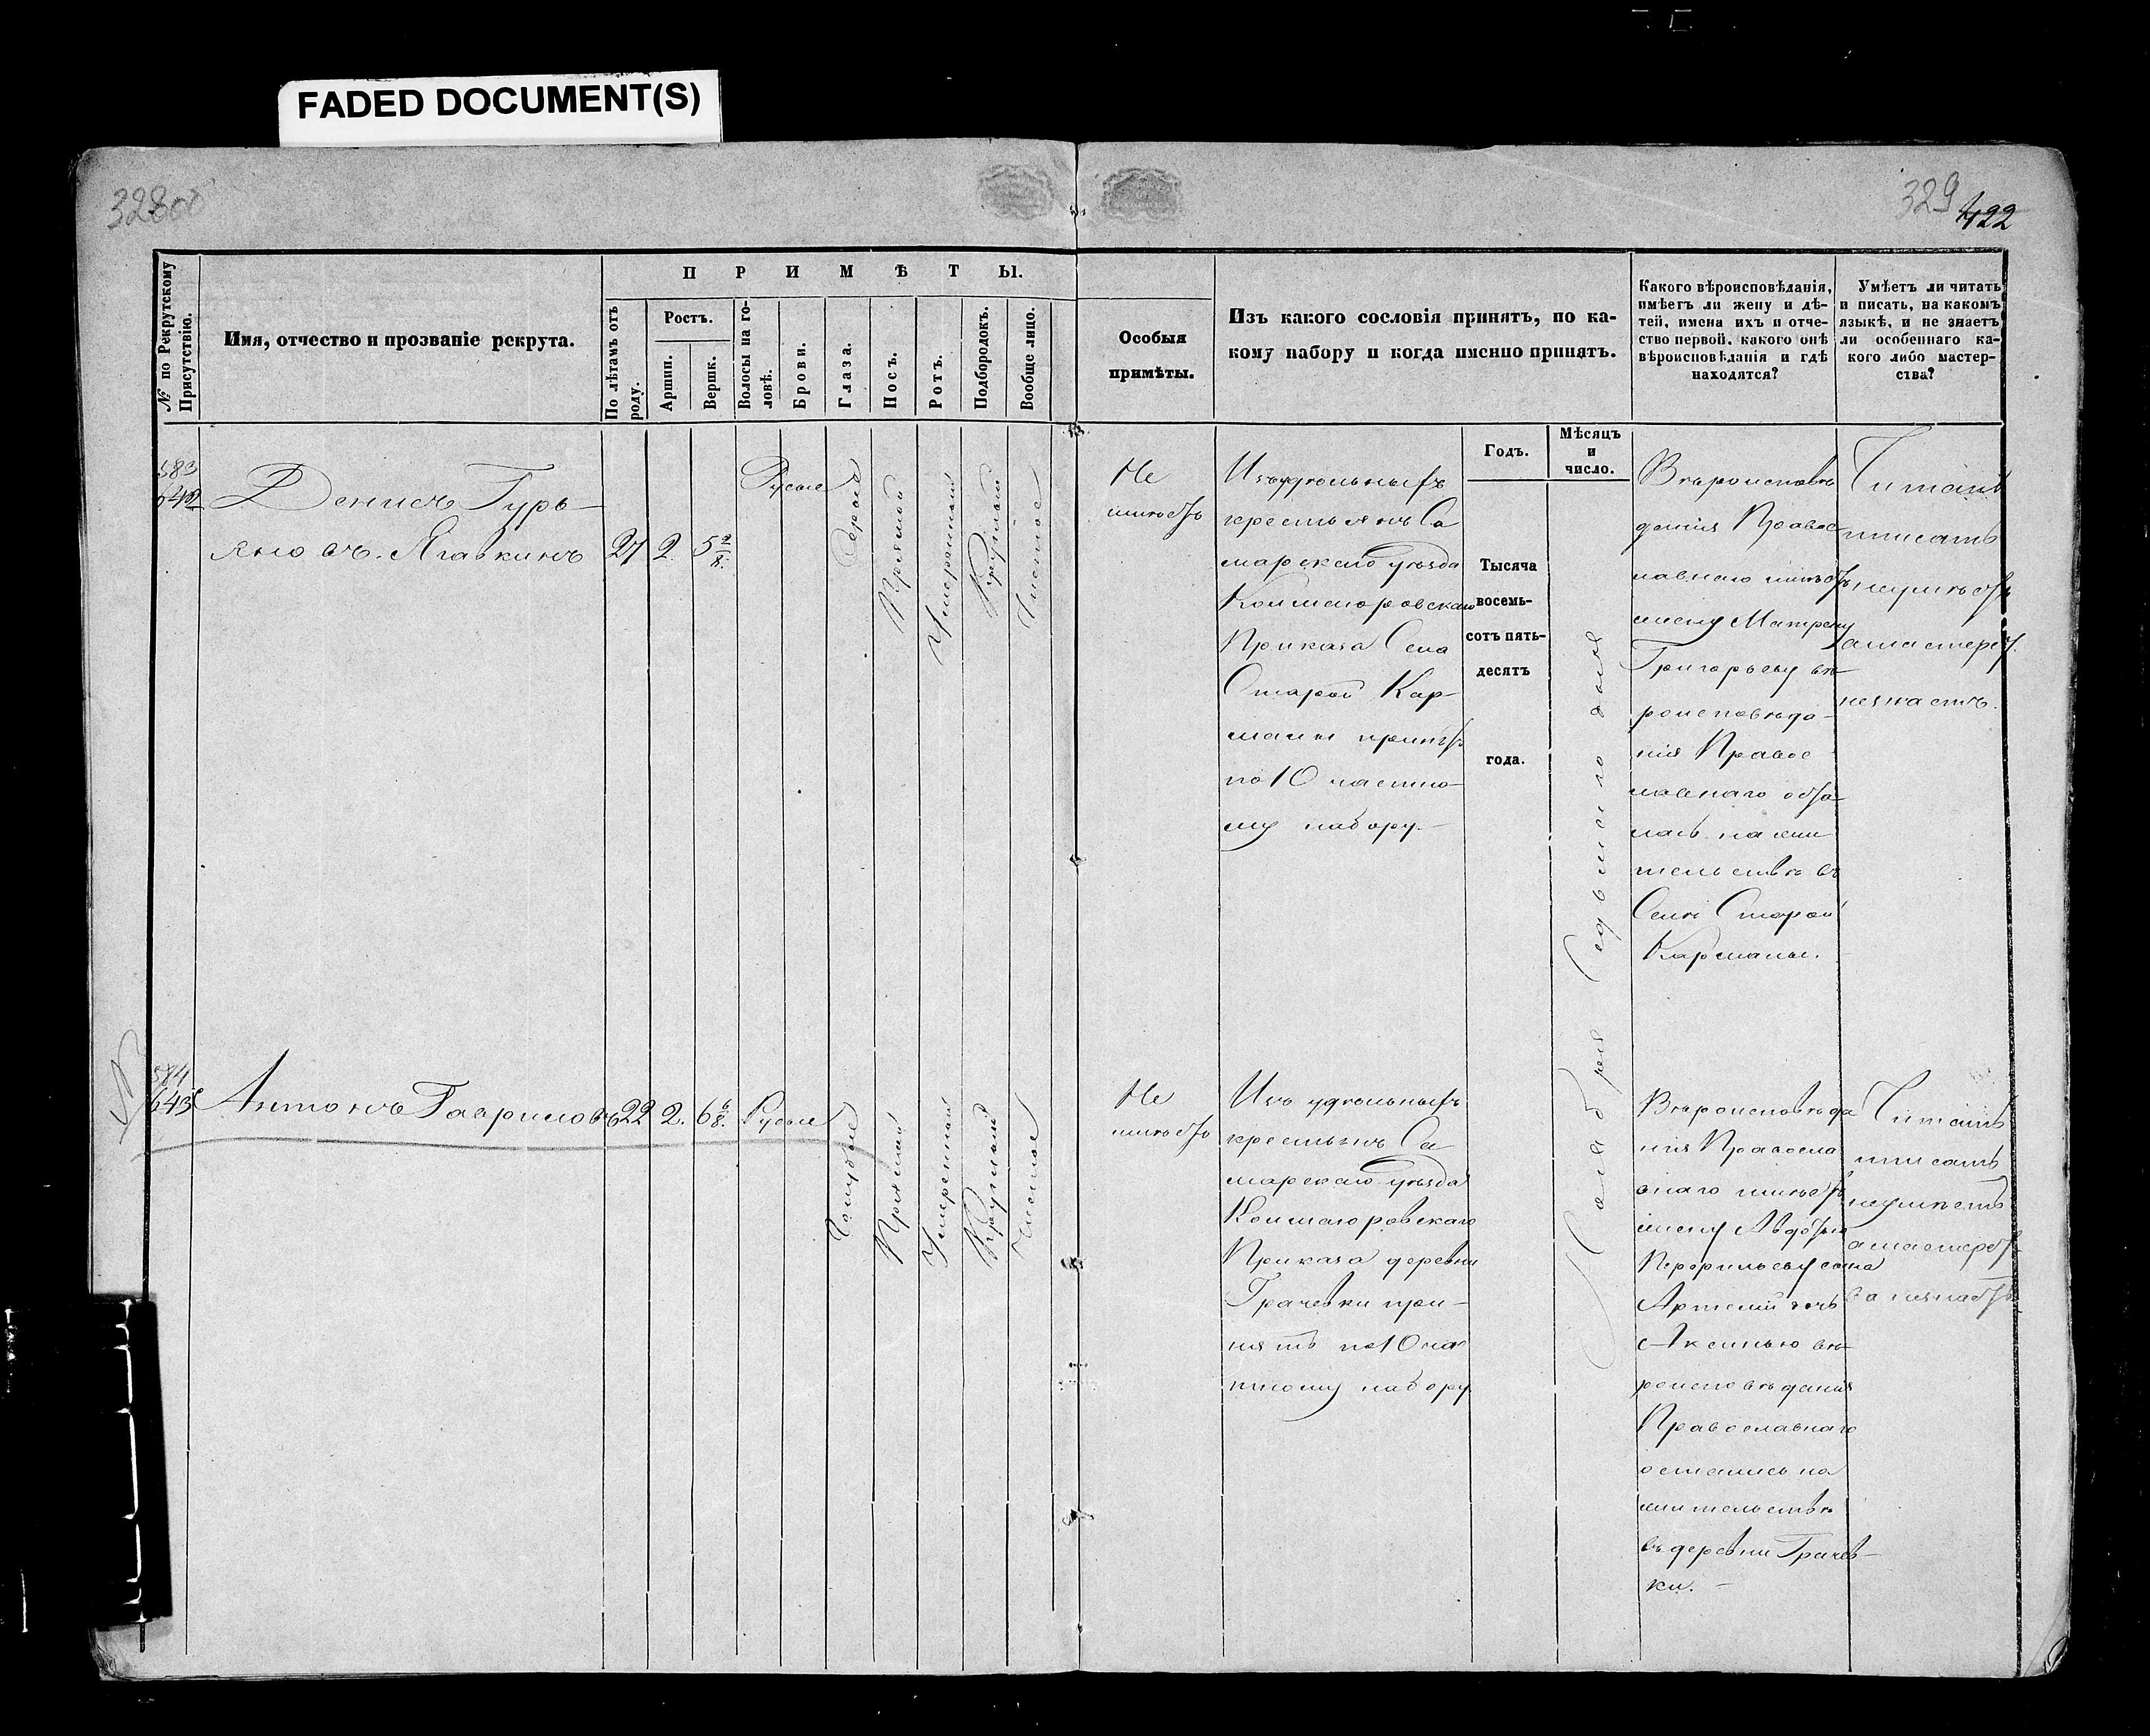 FADED DOCUMENT(S)
328об
329
422
№ по Рекрутскому Присутствію.
Имя, отчество и прозваніе рекрута.
ПРИМѢТЫ.
По лѣтамъ отъ роду.
Ростъ.
Аршин.
Вершк.
Волосы на головѣ.
Брови.
Глаза.
Носъ.
Ротъ.
Подбородокъ.
Вообще лицо.
Особыя
примѣты.
Изъ какого сословія принятъ, по ка-
кому набору и когда именно принятъ.
Какого вѣроисповѣданія,
имѣетъ ли жену и дѣ-
тей, имена ихъ и отче-
ство первой, какого онѣ
вѣроисповѣданія и гдѣ
находятся?
Умѣетъ ли читать
и писать, на какомъ
языкѣ, и не знаетъ
ли особеннаго ка-
кого либо мастер-
ства?
Годъ.
Мѣсяцъ
и
число.
Тысяча
восемь-
сотъ пять-
десятъ
года.
Ноября Седьмого дня
583
642
Денисъ Гурь-
яновъ. Ягавкинъ
27
2.
5 2/8.
Русые
Серые
Прямой
Умеренный
Круглый
Чистое
Не
имѣетъ
Изъ удѣльныхъ
крестьянъ Са
марскаго уѣзда
Колтогоровскаго
Приказа Села
Старой Кар-
малы принятъ
по 10 частно-
му набору.-
Вѣроисповѣ
данія Правос
лавнаго имѣетъ
жену Матрену
Григорьеву вѣ-
роисповѣда-
нія Правос
лавнаго оста-
лась на жи
тельствѣ въ
Селѣ Старой
Кармалы.
Читать
писать
неумѣетъ
а мастерст.
незнаетъ.
584
643
Антонъ Гавриловъ
22
2.
6 6/8.
Русые
Голубые
Прямой
Умеренный
Круглый
Чистое
Не
имѣетъ
Изъ удѣльныхъ
крестьянъ Са
марскаго уѣзда
Колтогоровскаго
Приказа деревни
Грачевки при-
нятъ по 10 час
тному набору
Вѣроисповѣда
нія Правосла
внаго имѣетъ
жену Авдотью
Перфильеву сына
Артемій дочь
Аксинью вѣ-
роисповѣданія
Православнаго
остались на
жительствѣ
въ деревни Грачев-
ки. -
Читать
писать
неумѣетъ
а мастерст
ва незнаетъ